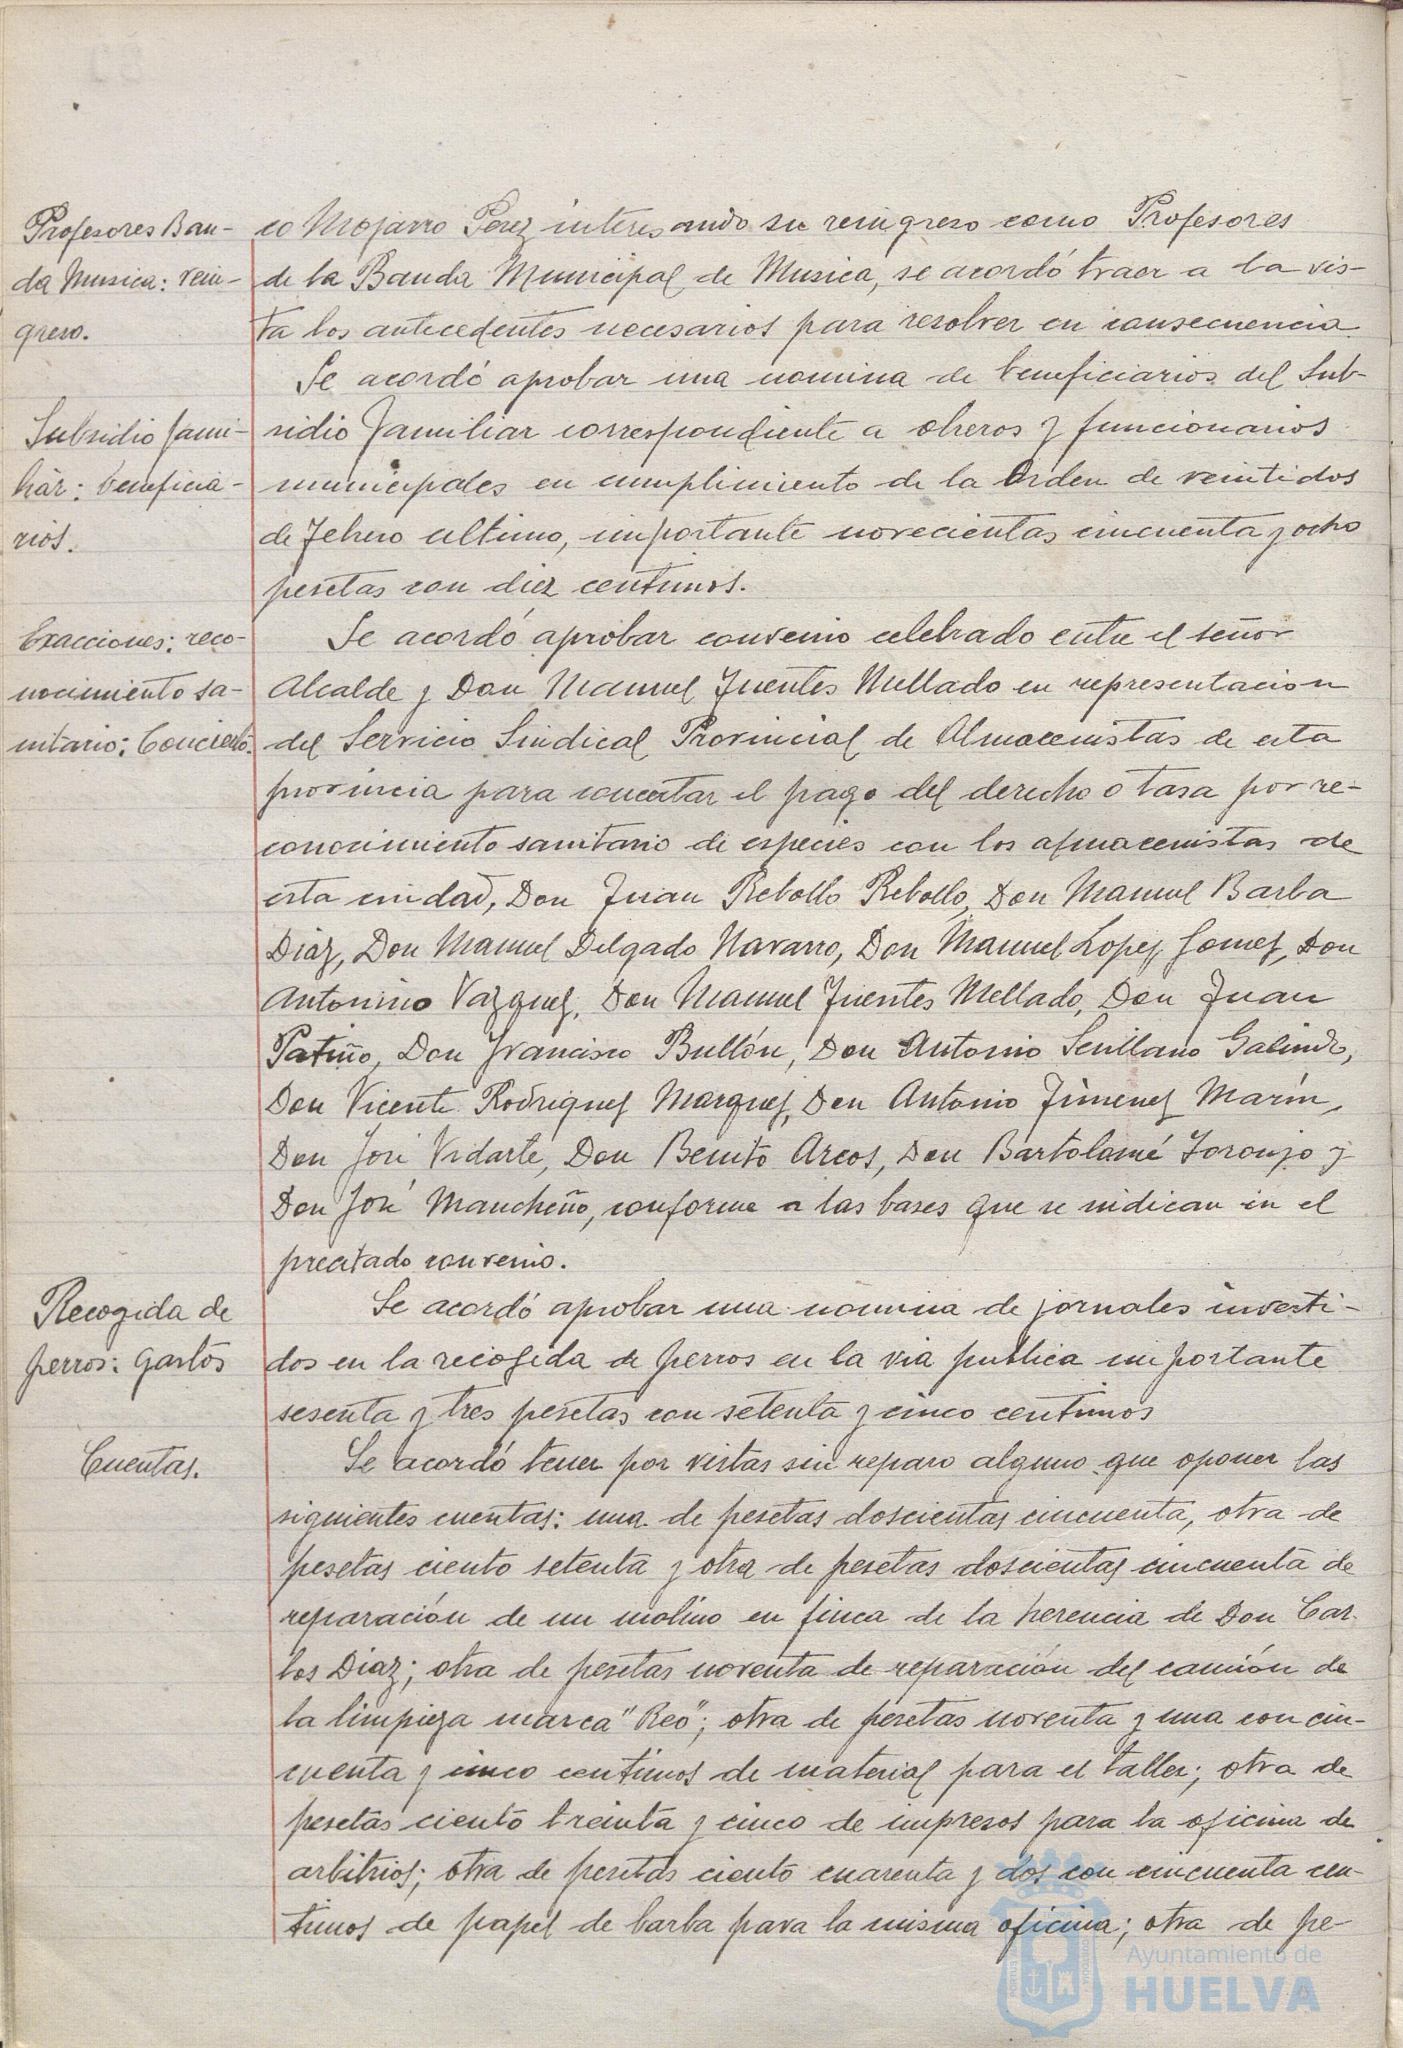 Profesores Ban-
da Musica: rein-
greso.
co Mojarro Perez interesando su reingreso como Profesores
de la Banda Municipal de Musica, se acordó traer a la vis-
ta los antecedentes necesarios para resolver en consecuencia
Subsidio fami-
liar: beneficia-
rios.
Se acordó aprobar una nomina de beneficiarios del Sub-
sidio Familiar correspondiente a obreros y funcionarios
municipales en cumplimiento de la Orden de veintidos
de Febrero ultimo, importante novecientas cincuenta y ocho
pesetas con diez centimos.
Exacciones: reco-
nocimiento sa-
nitario: Concierto.
Se acordó aprobar convenio celebrado entre el señor
Alcalde y Don Manuel Fuentes Mellado en representacion
del Servicio Sindical Provincial de Almacenistas de esta
provincia para concertar el pago del derecho o tasa por re-
conocimiento sanitario de especies con los almacenistas de
esta ciudad, Don Juan Rebollo Rebollo, Don Manuel Barba
Diaz, Don Manuel Delgado Navarro, Don Manuel Lopez Gomez, Don
Antonino Vazquez, Don Manuel Fuentes Mellado, Don Juan
Patiño, Don Francisco Bullón, Don Antonio Sevillano Galindo,
Don Vicente Rodriguez Marquez, Don Antonio Jimenez Marín,
Don José Vidarte, Don Benito Arcos, Don Bartolomé Toronjo y
Don José Mancheño, conforme a las bases que se indican en el
precitado convenio.
Recogida de
perros: gastos
Se acordó aprobar una nomina de jornales inverti-
dos en la recogida de perros en la via publica importante
sesenta y tres pesetas con setenta y cinco centimos
Cuentas.
Se acordó tener por vistas sin reparo alguno que oponer las
siguientes cuentas: una de pesetas doscientas cincuenta, otra de
pesetas ciento setenta y otra de pesetas doscientas cincuenta de
reparación de un molino en finca de la herencia de Don Car-
los Diaz; otra de pesetas noventa de reparación del camión de
la limpieza marca "Reo"; otra de pesetas noventa y una con cin-
cuenta y cinco centimos de material para el taller; otra de
pesetas ciento treinta y cinco de impresos para la oficina de
arbitrios; otra de pesetas ciento cuarenta y dos con cincuenta cen-
timos de papel de barba para la misma oficina; otra de pe-
Ayuntamiento de
HUELVA